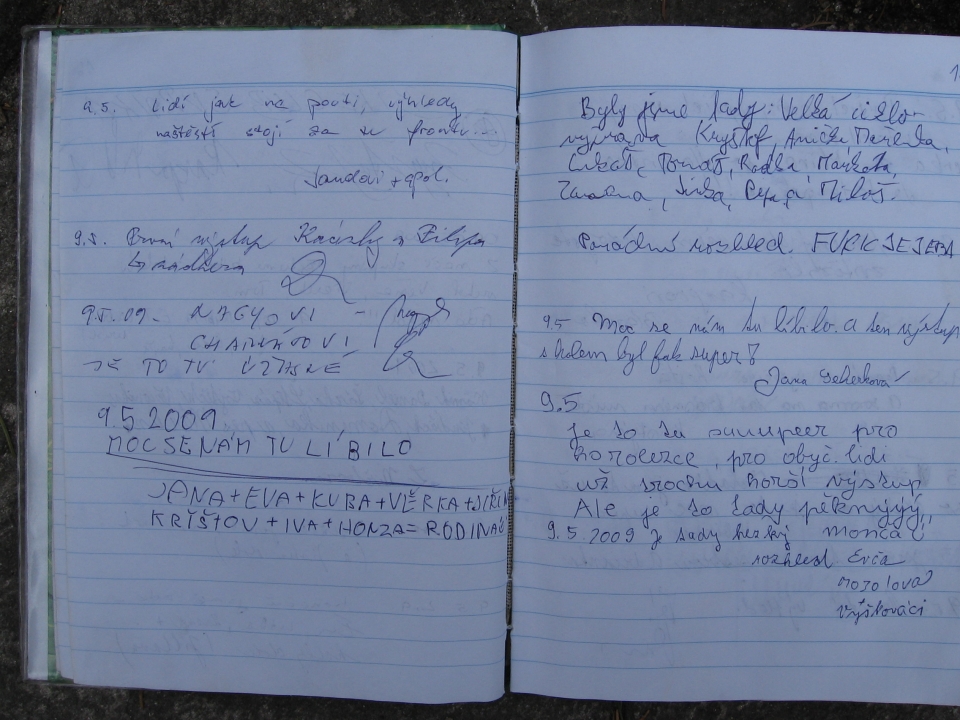 9.5. Lidí jak na pouti, výhledy
naštěstí stojí za tu frontu...
Jandovi + spol.
9.5. První výstup Kačenky a Filipa
9.5.09. NAGYOVI -
CHARVÁTOVI
JE TO TU ÚŽASNÉ
9.5 2009
MOC SE NÁM TU LÍBILO
JANA+EVA+KUBA+VĚRKA+JIŘÍ
KRYŠTOV+IVA+HONZA=RODINA
Byly jsme tady: Velká
výprava Kryštof, Anička, Mařenka,
Lukáš, Tomáš, Radka, Markéta,
Zuzana, Jirka, a Miloš.
Parádní rozhled. FURK JEJEBA
9.5 Moc se nám tu líbilo a ten výstup
s kolem byl fak super!
Jana
9.5
je to tu suuupeer pro
horolezce, pro obyč. lidi
už trochu horší výstup
Ale je to tady pěknýýý,,
9.5.2009 Je tady hezký Monča
rozhled Evča